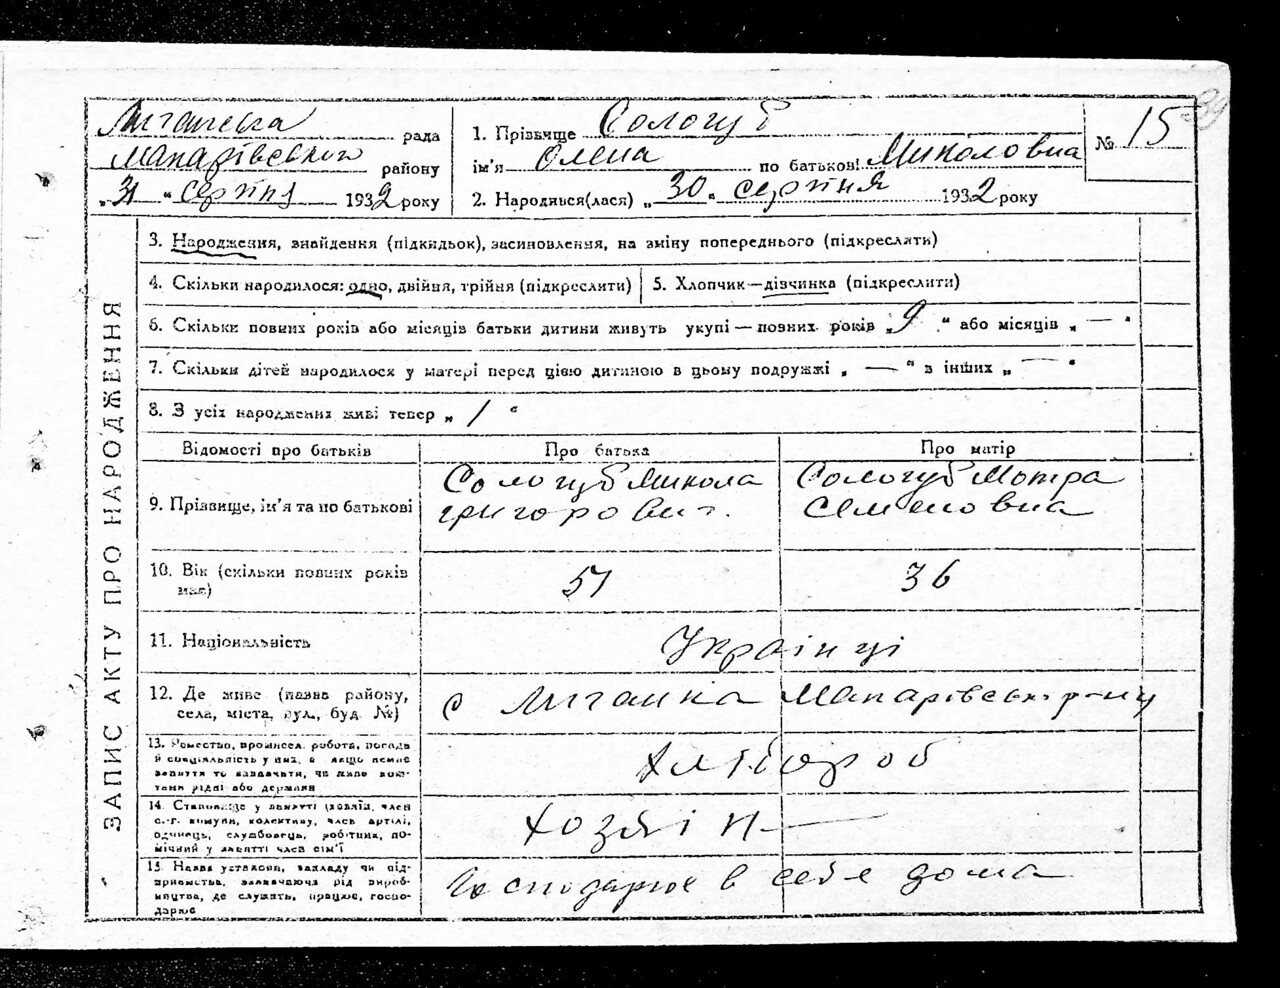 Лиганська рада
Макарівського району
„31“ серпня 1932 року
1. Прізвище Сологуб
ім'я Олена по батькові Миколовна
2. Народився(лася) „30“ серпня 1932 року
№ 15
39
ЗАПИС АКТУ ПРО НАРОДЖЕННЯ
3. Народження, знайдення (підкидьок), засиновлення, на зміну попереднього (підкреслити)
4. Скільки народилося: одно, двійня, трійня (підкреслити)
5. Хлопчик—дівчинка (підкреслити)
6. Скільки повних років або місяців батьки дитини живуть укупі — повних років „9“ або місяців „—“
7. Скільки дітей народилося у матері перед цією дитиною в цьому подружжі „—“ з інших „—“
8. З усіх народжених живі тепер „1“
Відомості про батьків
Про батька
Про матір
9. Прізвище, ім'я та по батькові
Сологуб Микола
Григорович.
Сологуб Мотра
Семеновна
10. Вік (скільки повних років
має)
51
36
11. Національність
Українці
12. Де живе (назва району,
села, міста, вул., буд. №)
с Лиганка Макарівськ. р-ну
13. Ремество, промисел, робота, посада
й спеціяльність у них, а якщо немає
заняття то зазначити, чи живе кош-
тами рідні або держави
Хлібороб
14. Становище у занятті (хазяїн, член
с.-г. комуни, колективу, член артілі,
одинець, службовець, робітник, по-
мічний у занятті член сім'ї
Хозяін —
15. Назва установи, закладу чи під-
приємства, зазначаючи рід вироб-
ництва, де служить, працює, госпо-
дарює
Господарює в себе дома